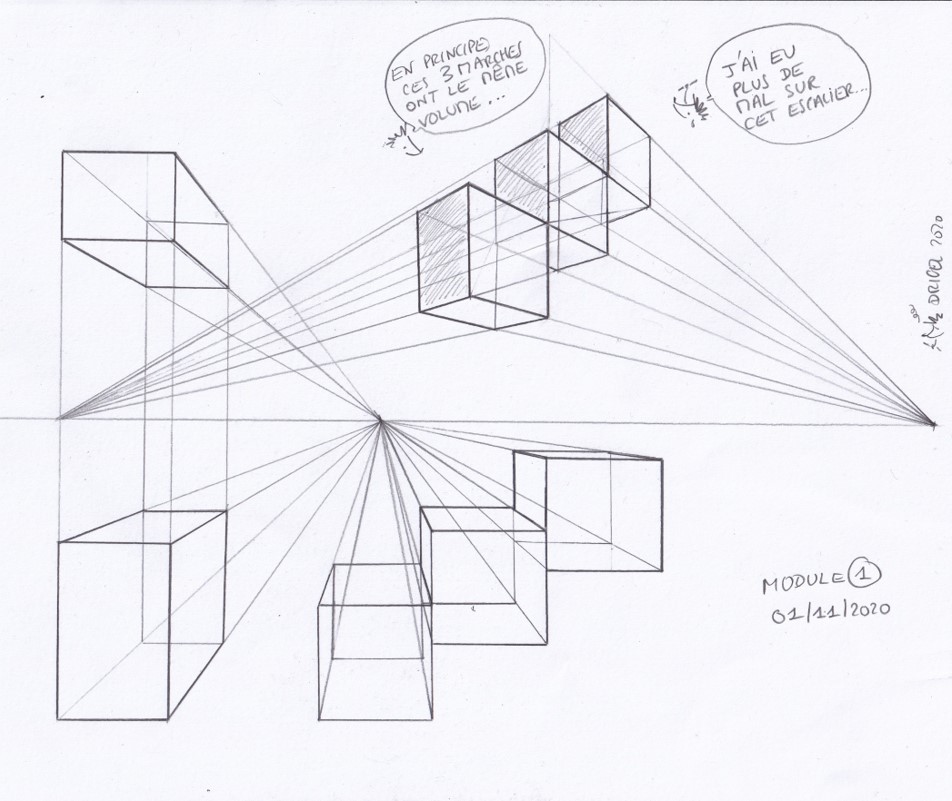 EN PRINCIPE,
CES 3 MARCHES
ONT LE MÊME
VOLUME...
J'AI EU
PLUS DE
MAL SUR
CET ESCALIER...
MODULE 1
01/11/2020
2020